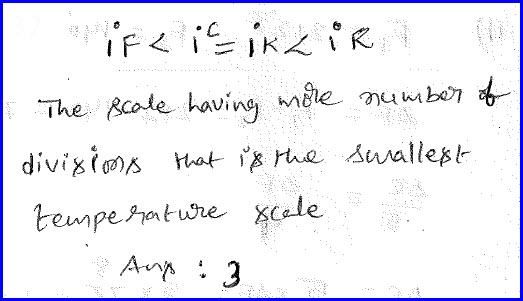 1°F < 1°C = 1K < 1°R
The scale having more number of
divisions that is the smallest
temperature scale
Ans : 3